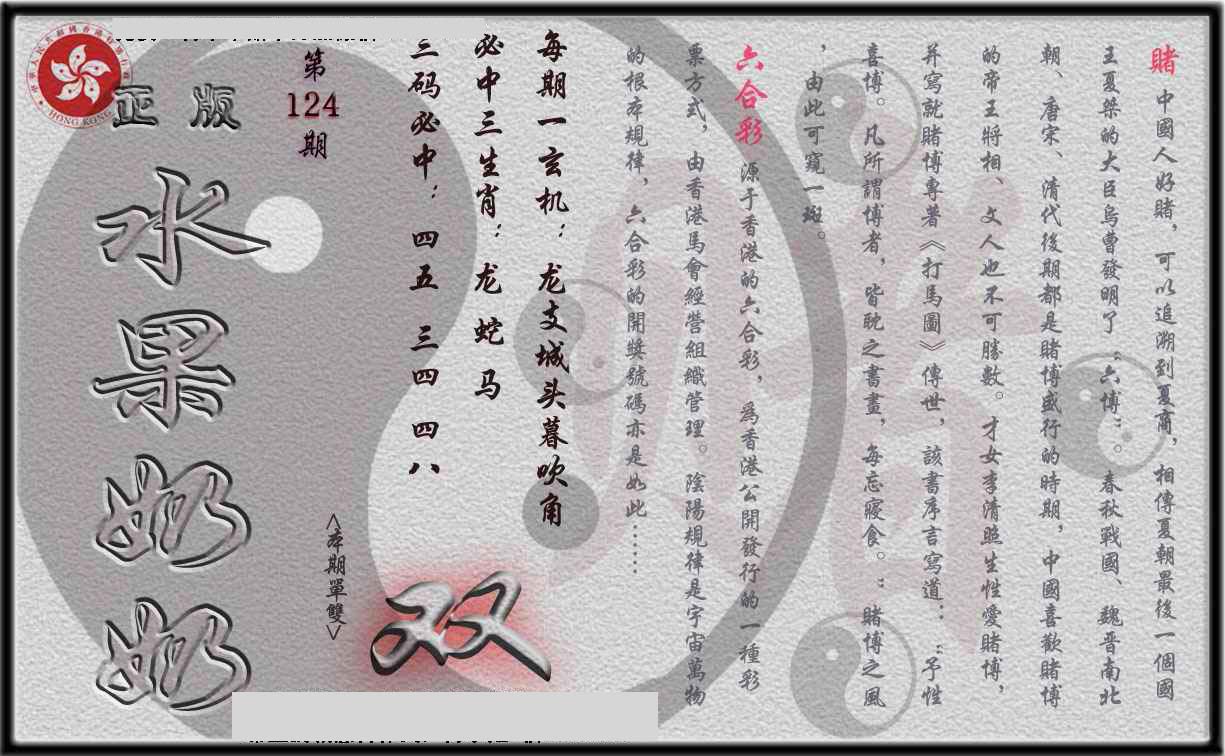 賭 中國人好賭，可以追溯到夏商，相傳夏朝最後一個國
王夏桀的大臣烏曹發明了“六博”。春秋戰國、魏晋南北
朝、唐宋、清代後期都是賭博盛行的時期，中國喜歡賭博
的帝王將相、文人也不可勝數。才女李清照生性愛賭博，
并寫就賭博專著《打馬圖》傳世，該書序言寫道：：“予性
喜博。凡所謂博者，皆耽之書晝，每忘寢食。”：賭博之風
，由此可窺一斑。
六合彩 源于香港的六合彩，爲香港公開發行的一種彩
票方式，由香港馬會經營組織管理。陰陽規律是宇宙萬物
的根本規律，六合彩的開獎號碼亦是如此……
每期一玄机：龙支城头暮吹角
必中三生肖：龙 蛇 马
三码必中：四五 三四 四八
第
124
期
<本期單雙>
双
正版
水果奶奶
HONG KONG